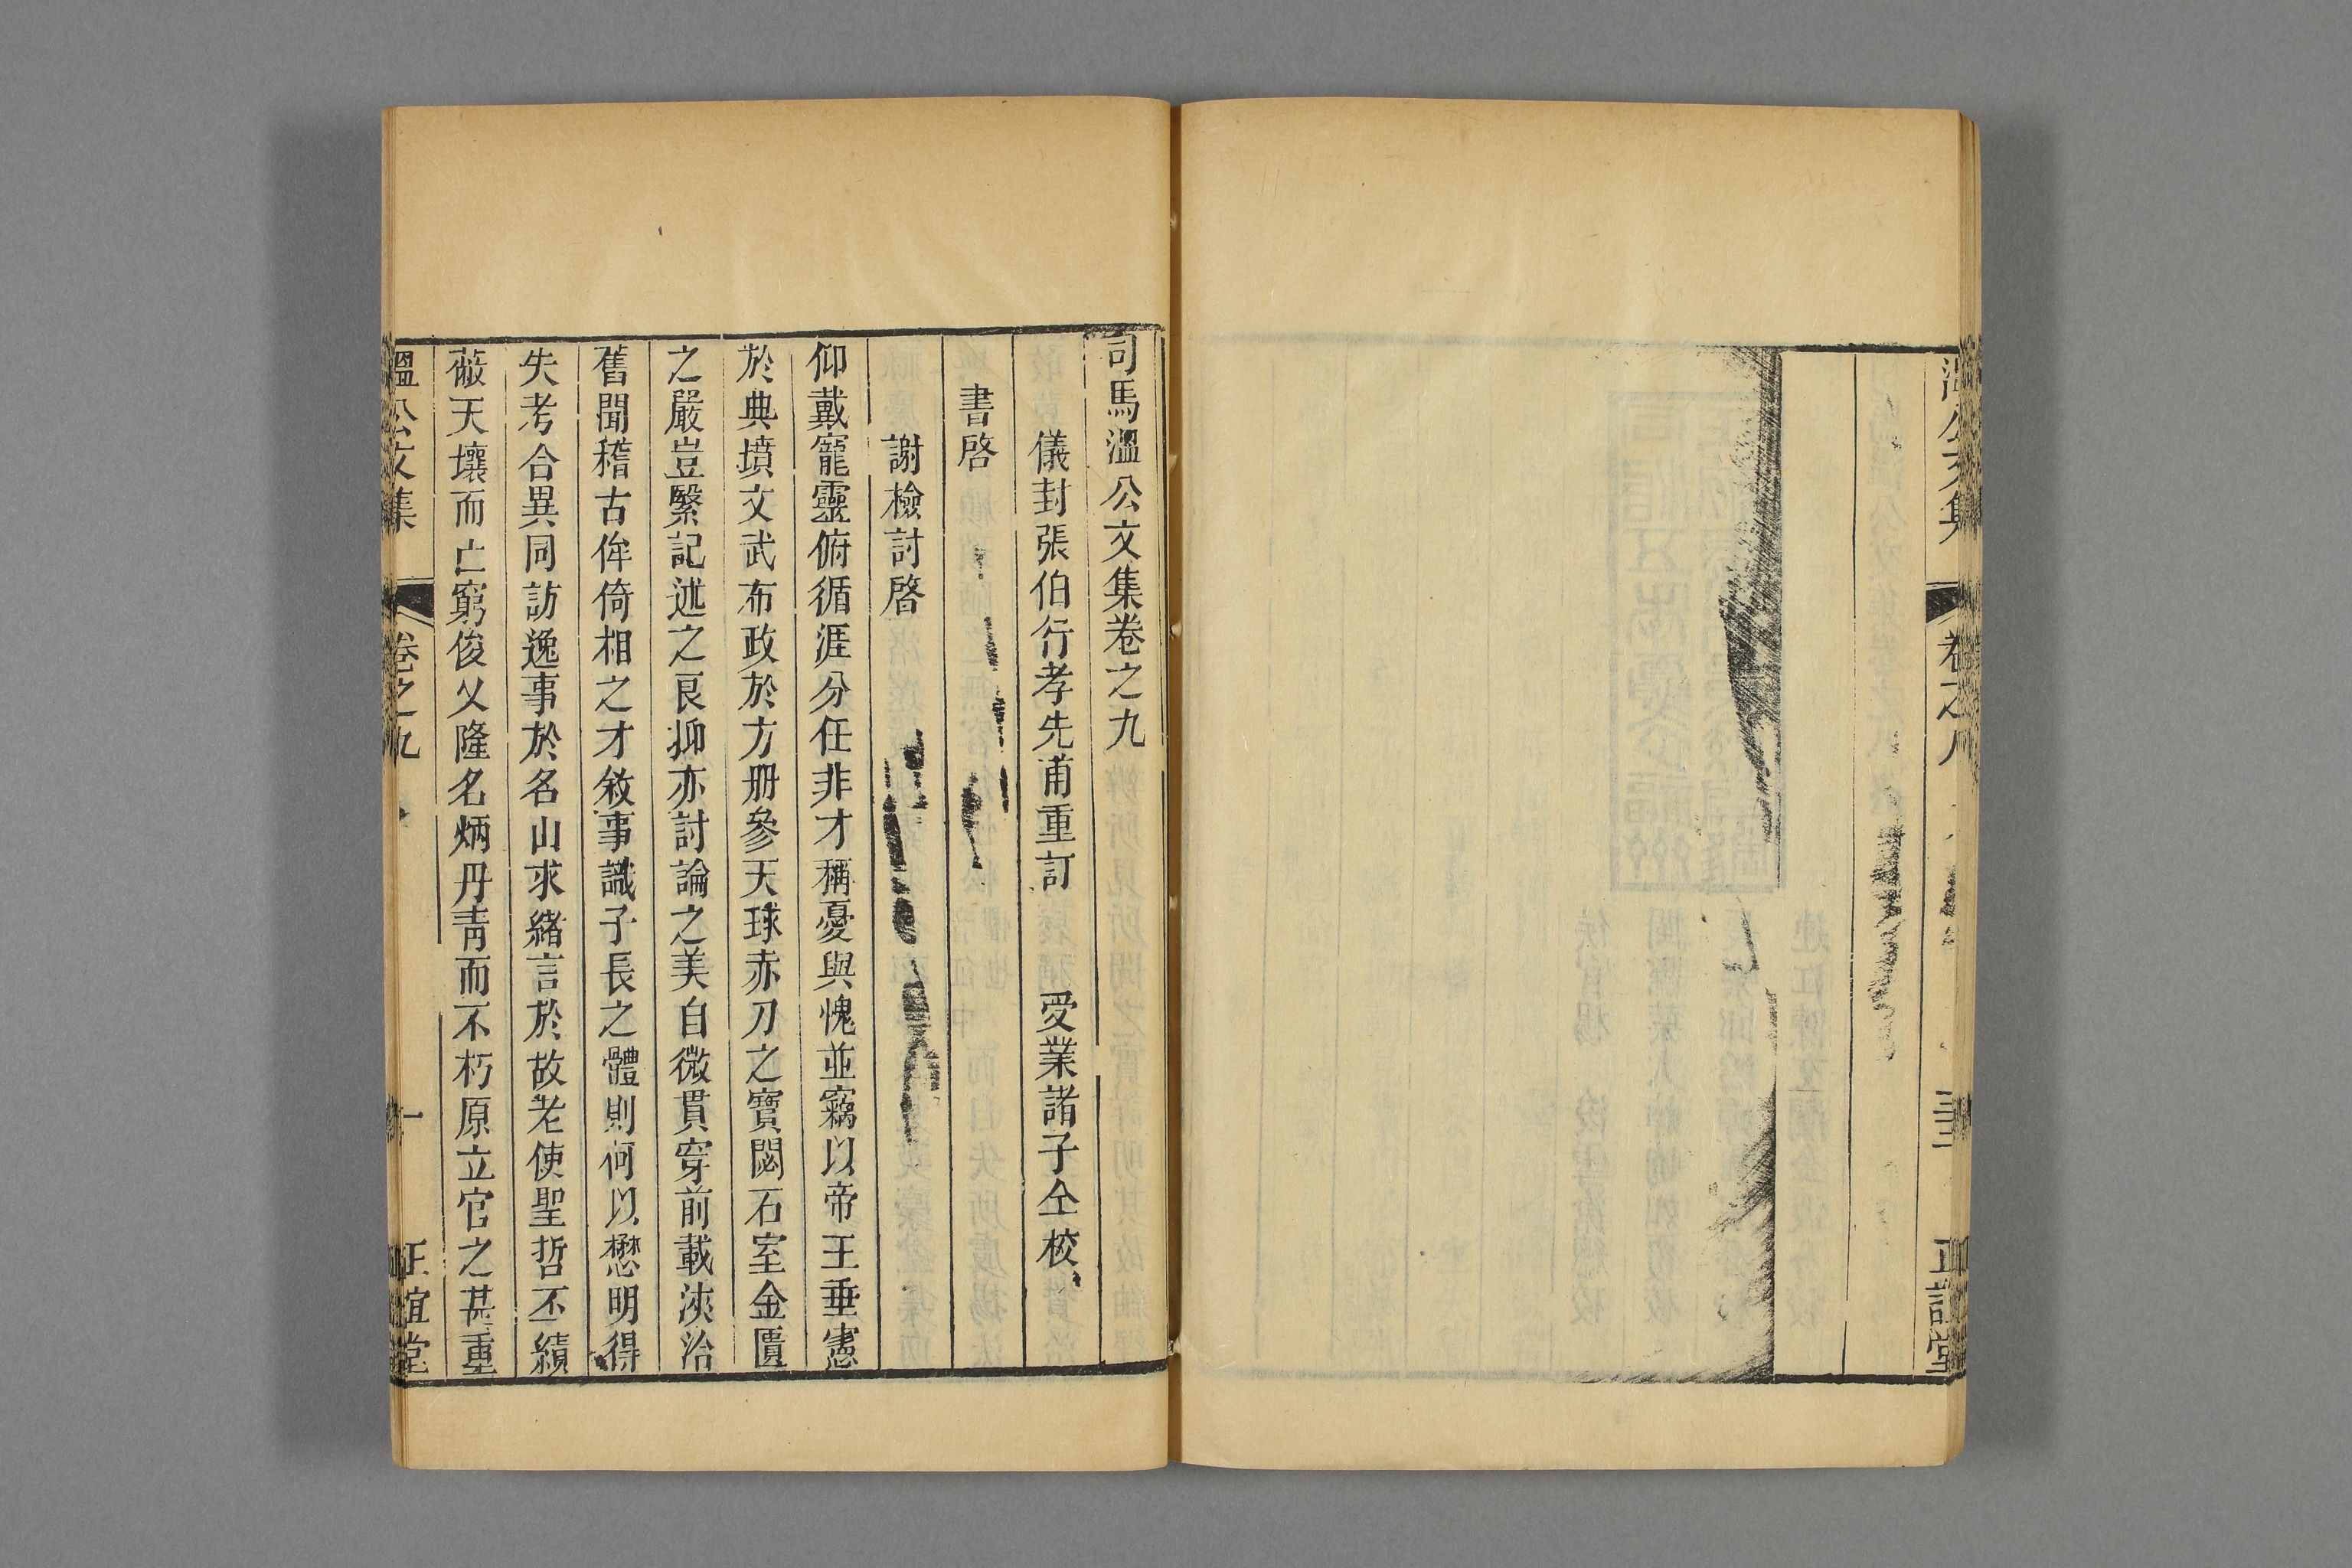 溫公文集
卷之八
正誼堂
司馬溫公文集卷之九
儀封張伯行孝先甫重訂 受業諸子仝校
書啓
謝檢討啓
仰戴寵靈俯循涯分任非才稱憂與愧並竊以帝王垂憲
於典墳文武布政於方册參天球赤刀之寶閟石室金匱
之嚴豈繄記述之良抑亦討論之美自微貫穿前載浹洽
舊聞稽古侔倚相之才敘事識子長之體則何以懋明得
失考合異同訪逸事於名山求緒言於故老使聖哲丕績
蔽天壤而亡窮俊乂隆名炳丹靑而不朽原立官之甚重
溫公文集
卷之九
一
正誼堂